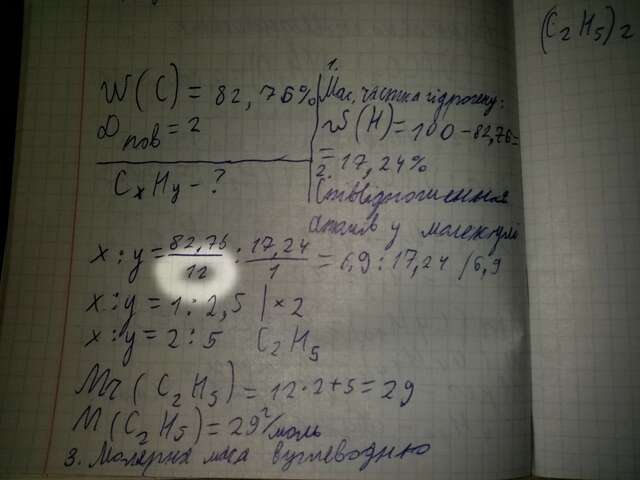 (C₂H₅)₂
W(C) = 82,76%
Dпов = 2
CxHy - ?
1.
Мас. частка гідрогену:
W(H) = 100 - 82,76 =
= 17,24%
2.
Співвідношення
атомів у молекулі
x : y = 82,76/12 : 17,24/1 = 6,9 : 17,24 /6,9
x : y = 1 : 2,5 | ×2
x : y = 2 : 5 C₂H₅
Mr(C₂H₅) = 12·2+5 = 29
M(C₂H₅) = 29 г/моль
3. Молярна маса вуглеводню